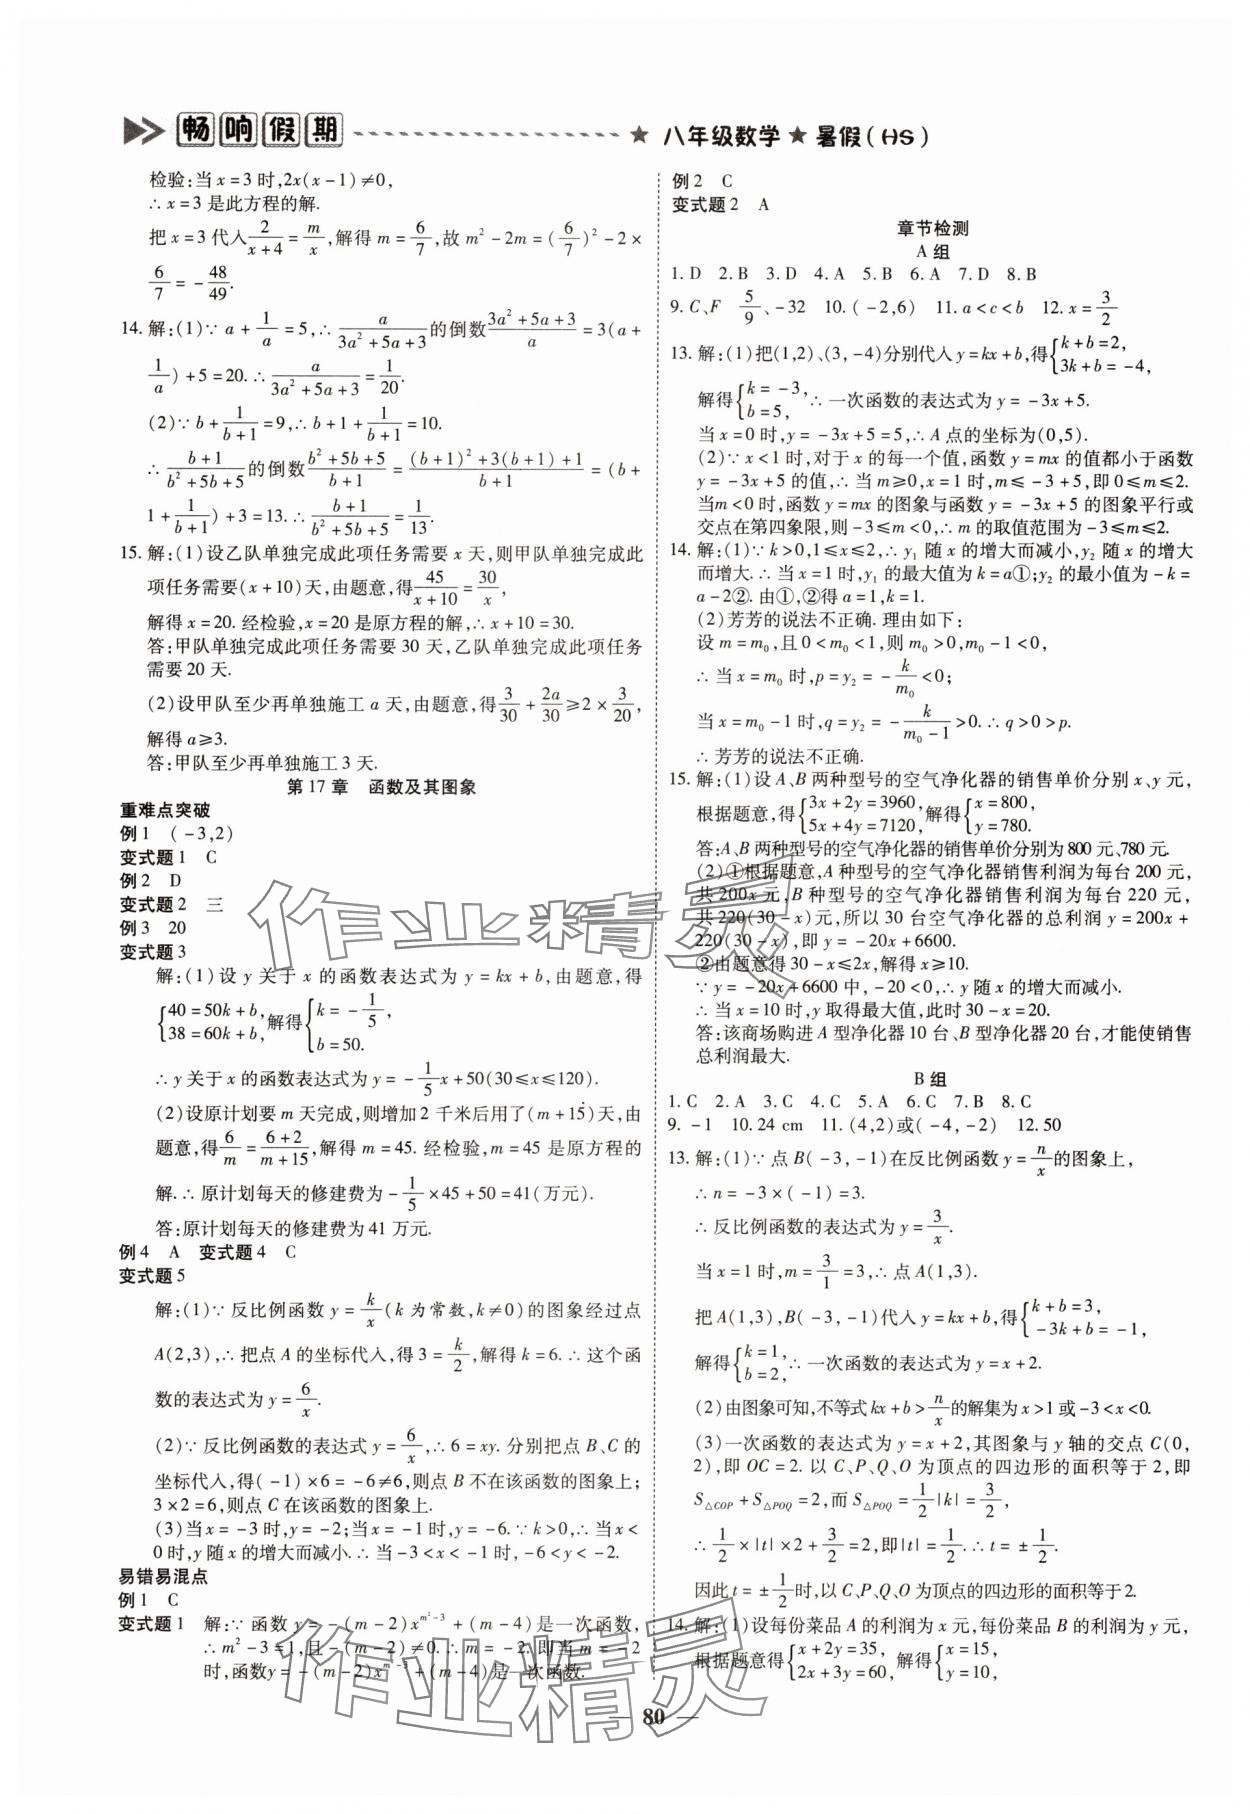 畅响假期 ★ 八年级数学 ★ 暑假(HS)
检验:当 x=3 时,2x(x-1)≠0,
∴ x=3 是此方程的解.
把 x=3 代入 2/(x+4) = m/x,解得 m = 6/7,故 m²-2m=(6/7)²-2×
6/7 = -48/49.
14. 解:(1)∵ a+1/a=5,∴ a/(3a²+5a+3) 的倒数 (3a²+5a+3)/a =3(a+
1/a)+5=20. ∴ a/(3a²+5a+3) = 1/20.
(2)∵ b+1/(b+1)=9,∴ b+1+1/(b+1)=10.
∴ (b+1)/(b²+5b+5) 的倒数 (b²+5b+5)/(b+1) = ((b+1)²+3(b+1)+1)/(b+1) =(b+
1+1/(b+1))+3=13. ∴ (b+1)/(b²+5b+5) = 1/13.
15. 解:(1)设乙队单独完成此项任务需要 x 天,则甲队单独完成此
项任务需要(x+10)天,由题意,得 45/(x+10) = 30/x,
解得 x=20. 经检验,x=20 是原方程的解,∴ x+10=30.
答:甲队单独完成此项任务需要 30 天,乙队单独完成此项任务
需要 20 天.
(2)设甲队至少再单独施工 a 天,由题意,得 3/30 + 2a/30 ≥2× 3/20,
解得 a≥3.
答:甲队至少再单独施工 3 天.
第 17 章 函数及其图象
重难点突破
例 1 (-3,2)
变式题 1 C
例 2 D
变式题 2 三
例 3 20
变式题 3
解:(1)设 y 关于 x 的函数表达式为 y=kx+b,由题意,得
{40=50k+b, 38=60k+b, 解得 {k=-1/5, b=50.
∴ y 关于 x 的函数表达式为 y=-1/5x+50(30≤x≤120).
(2)设原计划要 m 天完成,则增加 2 千米后用了(m+15)天,由
题意,得 6/m = (6+2)/(m+15),解得 m=45. 经检验,m=45 是原方程的
解. ∴ 原计划每天的修建费为 -1/5×45+50=41(万元).
答:原计划每天的修建费为 41 万元.
例 4 A 变式题 4 C
变式题 5
解:(1)∵ 反比例函数 y=k/x(k 为常数,k≠0)的图象经过点
A(2,3),∴ 把点 A 的坐标代入,得 3=k/2,解得 k=6. ∴ 这个函
数的表达式为 y=6/x.
(2)∵ 反比例函数的表达式 y=6/x,∴ 6=xy. 分别把点 B、C 的
坐标代入,得(-1)×6=-6≠6,则点 B 不在该函数的图象上;
3×2=6,则点 C 在该函数的图象上.
(3)当 x=-3 时,y=-2;当 x=-1 时,y=-6. ∵ k>0,∴ 当 x<
0 时,y 随 x 的增大而减小. ∴ 当-3<x<-1 时,-6<y<-2.
易错易混点
例 1 C
变式题 1 解:∵ 函数 y=-(m-2)x^(m²-3)+(m-4)是一次函数,
∴ m²-3=1,且-(m-2)≠0. ∴ m=-2. 即当 m=-2
时,函数y=-(m-2)x^(m²-3)+(m-4)是一次函数.
例 2 C
变式题 2 A
章节检测
A 组
1. D 2. B 3. D 4. A 5. B 6. A 7. D 8. B
9. C、F 5/9、-32 10. (-2,6) 11. a<c<b 12. x=3/2
13. 解:(1)把(1,2)、(3,-4)分别代入 y=kx+b,得{k+b=2, 3k+b=-4,
解得{k=-3, b=5, ∴ 一次函数的表达式为 y=-3x+5.
当 x=0 时,y=-3x+5=5,∴ A 点的坐标为(0,5).
(2)∵ x<1 时,对于 x 的每一个值,函数 y=mx 的值都小于函数
y=-3x+5 的值,∴ 当 m≥0,x=1 时,m≤-3+5,即 0≤m≤2.
当m<0 时,函数 y=mx 的图象与函数 y=-3x+5 的图象平行或
交点在第四象限,则-3≤m<0,∴ m 的取值范围为-3≤m≤2.
14. 解:(1)∵ k>0,1≤x≤2,∴ y₁ 随 x 的增大而减小,y₂ 随 x 的增大
而增大. ∴ 当 x=1 时,y₁ 的最大值为 k=a①;y₂ 的最小值为-k=
a-2②. 由①,②得 a=1,k=1.
(2)芳芳的说法不正确. 理由如下:
设 m=m₀,且 0<m₀<1,则 m₀>0,m₀-1<0,
∴ 当 x=m₀ 时,p=y₂=-k/m₀<0;
当 x=m₀-1 时,q=y₂=-k/(m₀-1)>0. ∴ q>0>p.
∴ 芳芳的说法不正确.
15. 解:(1)设 A、B 两种型号的空气净化器的销售单价分别 x、y 元,
根据题意,得{3x+2y=3960, 5x+4y=7120, 解得{x=800, y=780.
答:A、B 两种型号的空气净化器的销售单价分别为 800 元、780 元.
(2)①根据题意,A 种型号的空气净化器的销售利润为每台 200 元,
共 200x 元,B 种型号的空气净化器销售利润为每台 220 元,
共 220(30-x)元,所以 30 台空气净化器的总利润 y=200x+
220(30-x),即 y=-20x+6600.
②由题意得 30-x≤2x,解得 x≥10.
∵ y=-20x+6600 中,-20<0,∴ y 随 x 的增大而减小.
∴ 当 x=10 时,y 取得最大值,此时 30-x=20.
答:该商场购进 A 型净化器 10 台、B 型净化器 20 台,才能使销售
总利润最大.
B 组
1. C 2. A 3. C 4. C 5. A 6. C 7. B 8. C
9. -1 10. 24 cm 11. (4,2)或(-4,-2) 12. 50
13. 解:(1)∵ 点 B(-3,-1)在反比例函数 y=n/x 的图象上,
∴ n=-3×(-1)=3.
∴ 反比例函数的表达式为 y=3/x.
当 x=1 时,m=3/1=3,∴ 点 A(1,3).
把 A(1,3),B(-3,-1)代入 y=kx+b,得{k+b=3, -3k+b=-1,
解得{k=1, b=2, ∴ 一次函数的表达式为 y=x+2.
(2)由图象可知,不等式 kx+b>n/x 的解集为 x>1 或-3<x<0.
(3)一次函数的表达式为 y=x+2,其图象与 y 轴的交点 C(0,
2),即 OC=2. 以 C、P、Q、O 为顶点的四边形的面积等于 2,即
S△COP+S△POQ=2,而 S△POQ=1/2|k|=3/2,
∴ 1/2×|t|×2+3/2=2,即|t|=1/2. ∴ t=±1/2.
因此 t=±1/2 时,以 C、P、Q、O 为顶点的四边形的面积等于 2.
14. 解:(1)设每份菜品 A 的利润为 x 元,每份菜品 B 的利润为 y 元,
根据题意得{x+2y=35, 2x+3y=60, 解得{x=15, y=10,
— 80 —
作业精灵
作业精灵